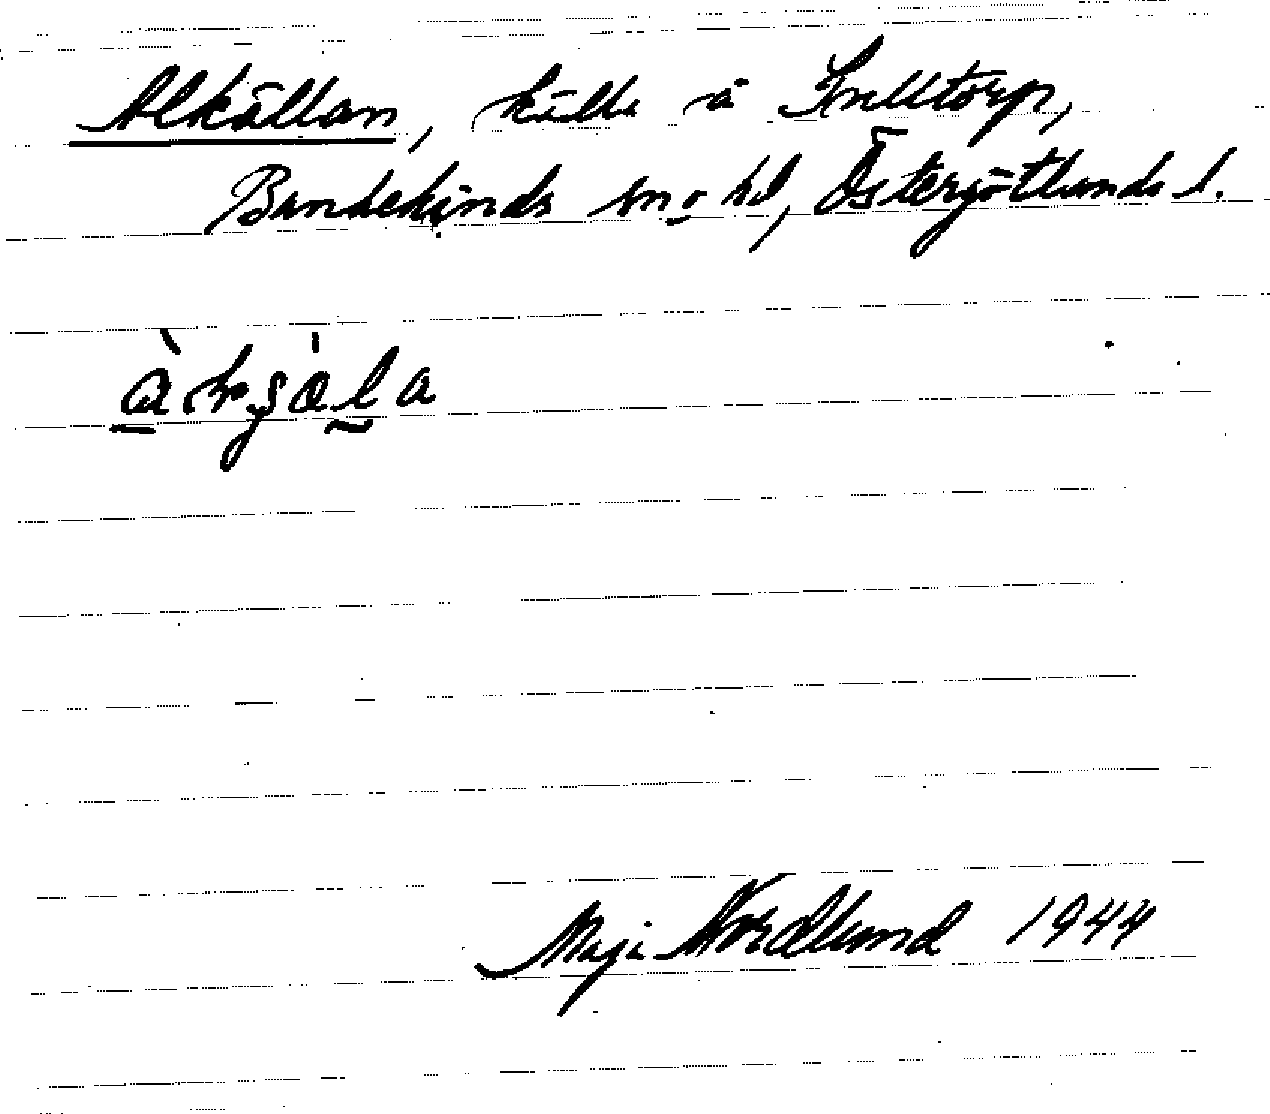 Alkällan, källa å Gälltorp,
Bankekinds sn o hd, Östergötlands l.
Maja Nordlund 1944